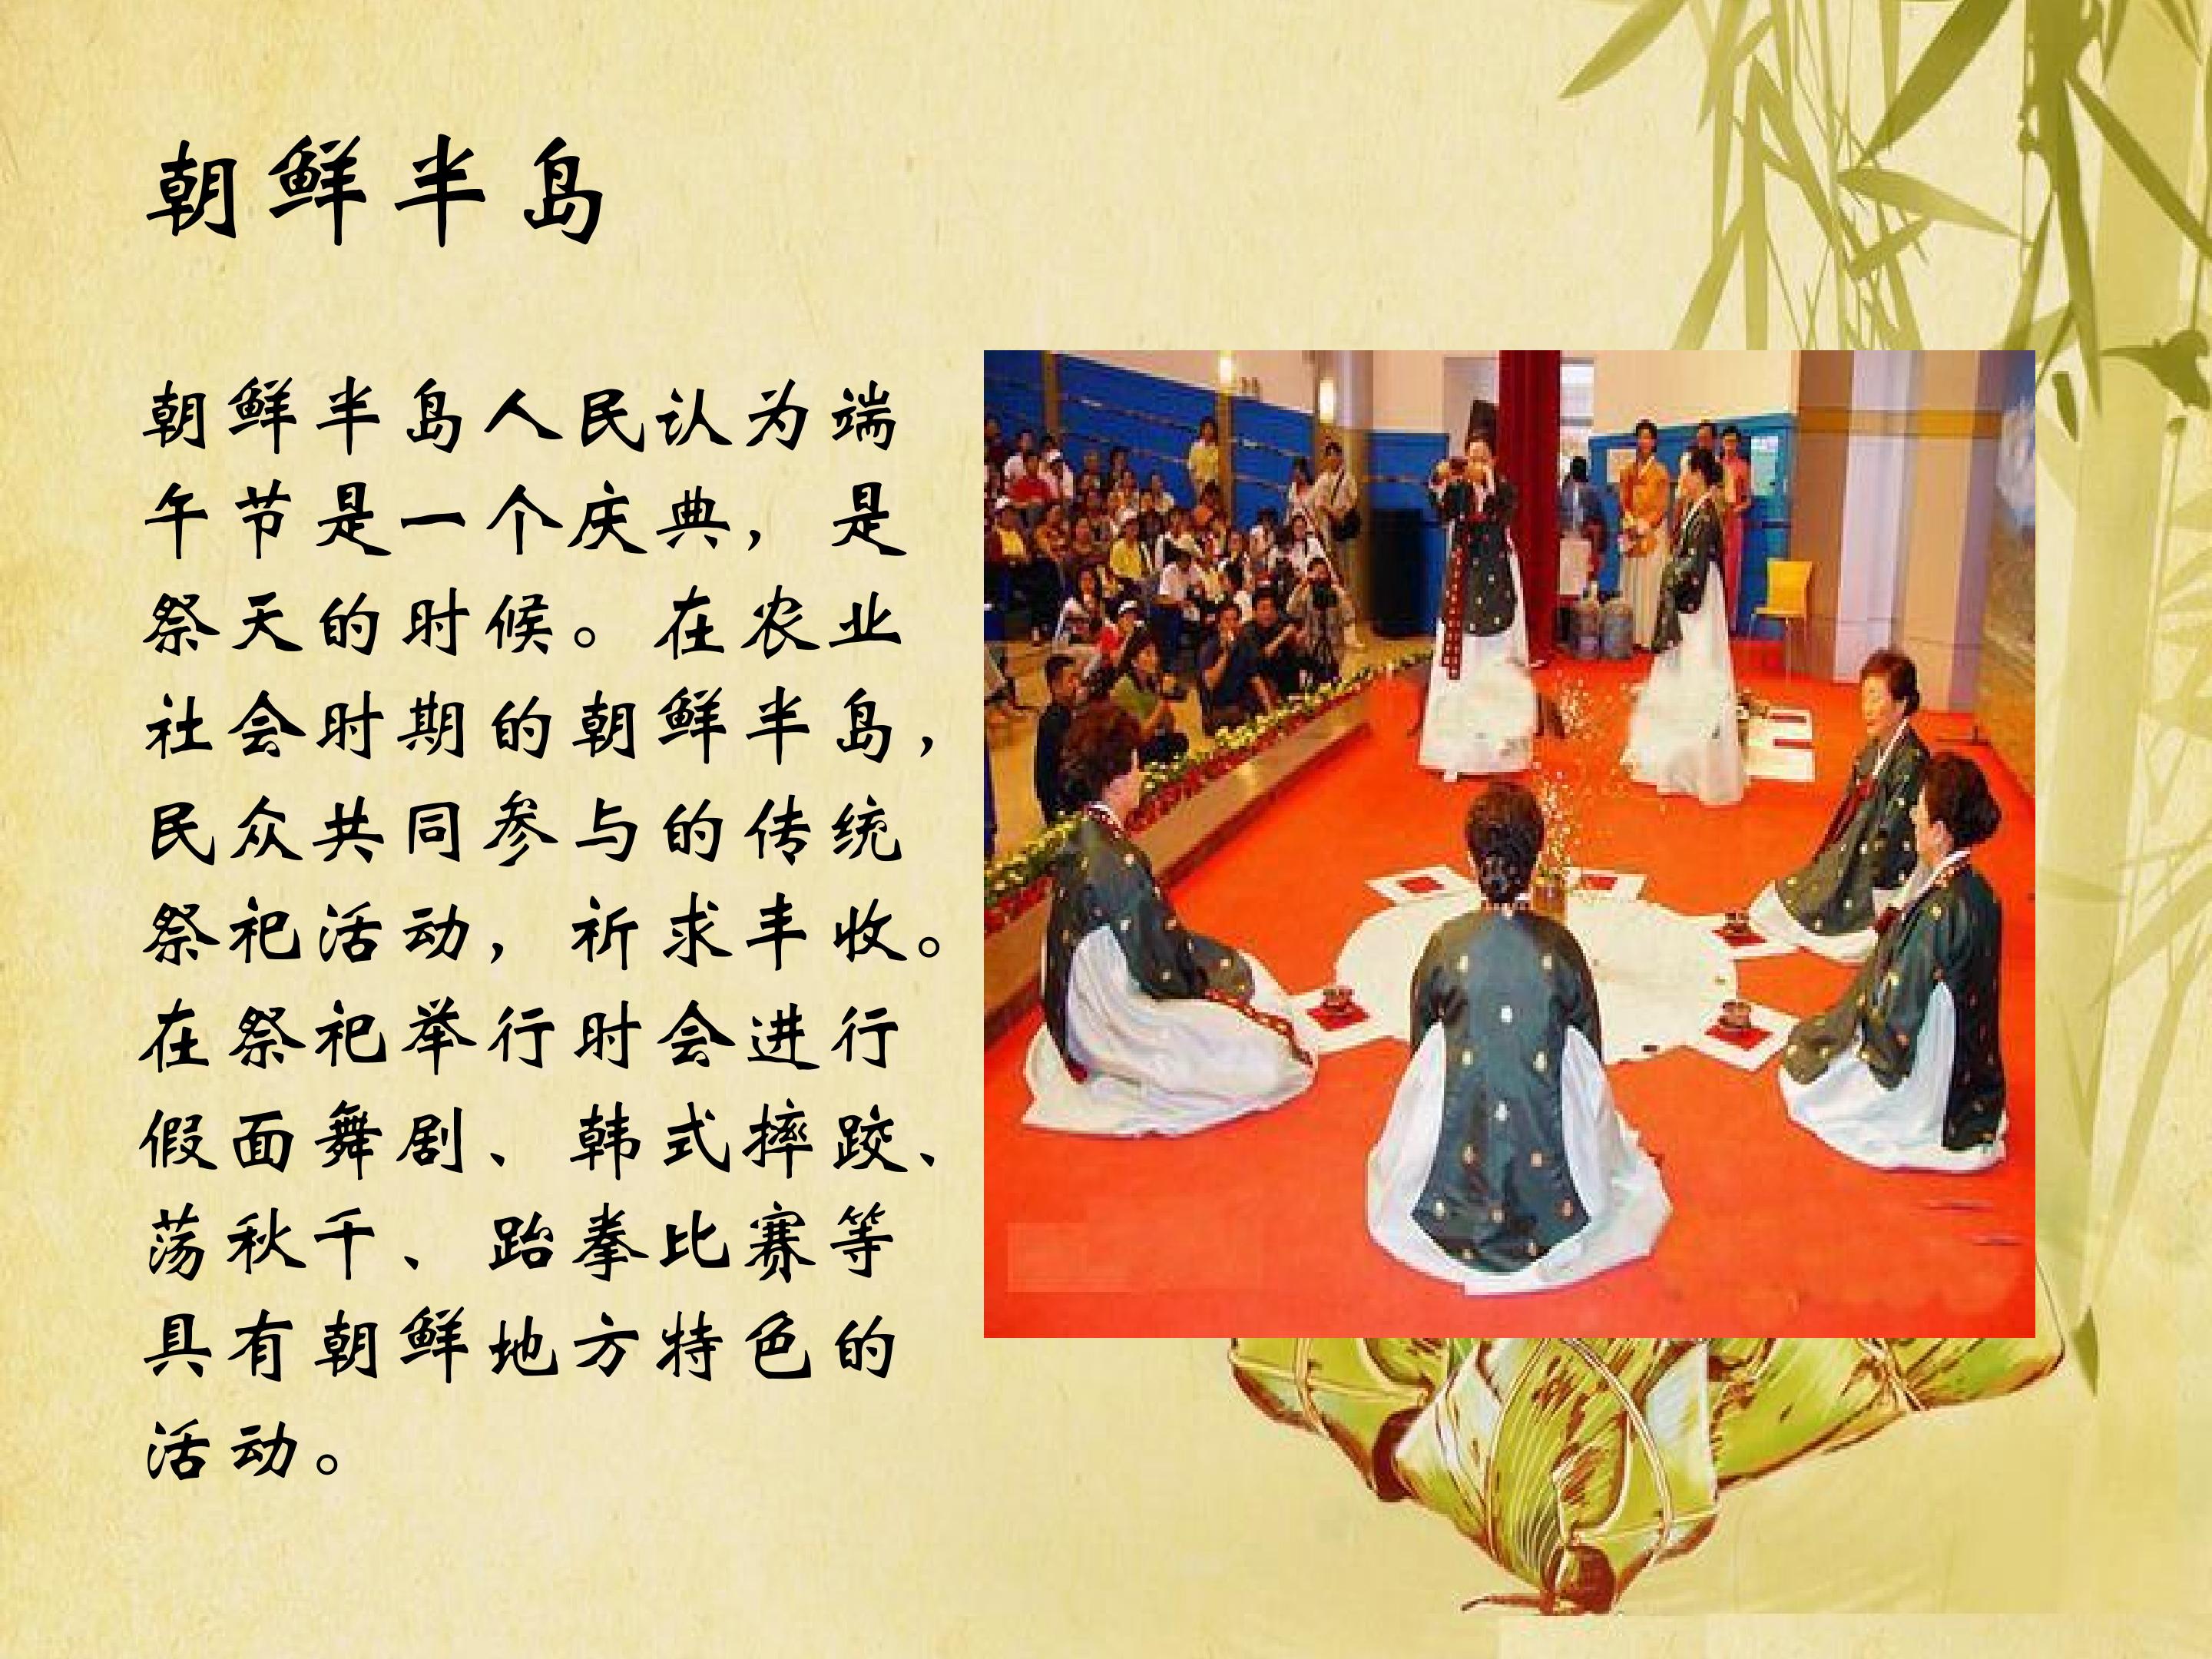 朝鲜半岛
朝鲜半岛人民认为端
午节是一个庆典，是
祭天的时候。在农业
社会时期的朝鲜半岛，
民众共同参与的传统
祭祀活动，祈求丰收。
在祭祀举行时会进行
假面舞剧、韩式摔跤、
荡秋千、跆拳比赛等
具有朝鲜地方特色的
活动。